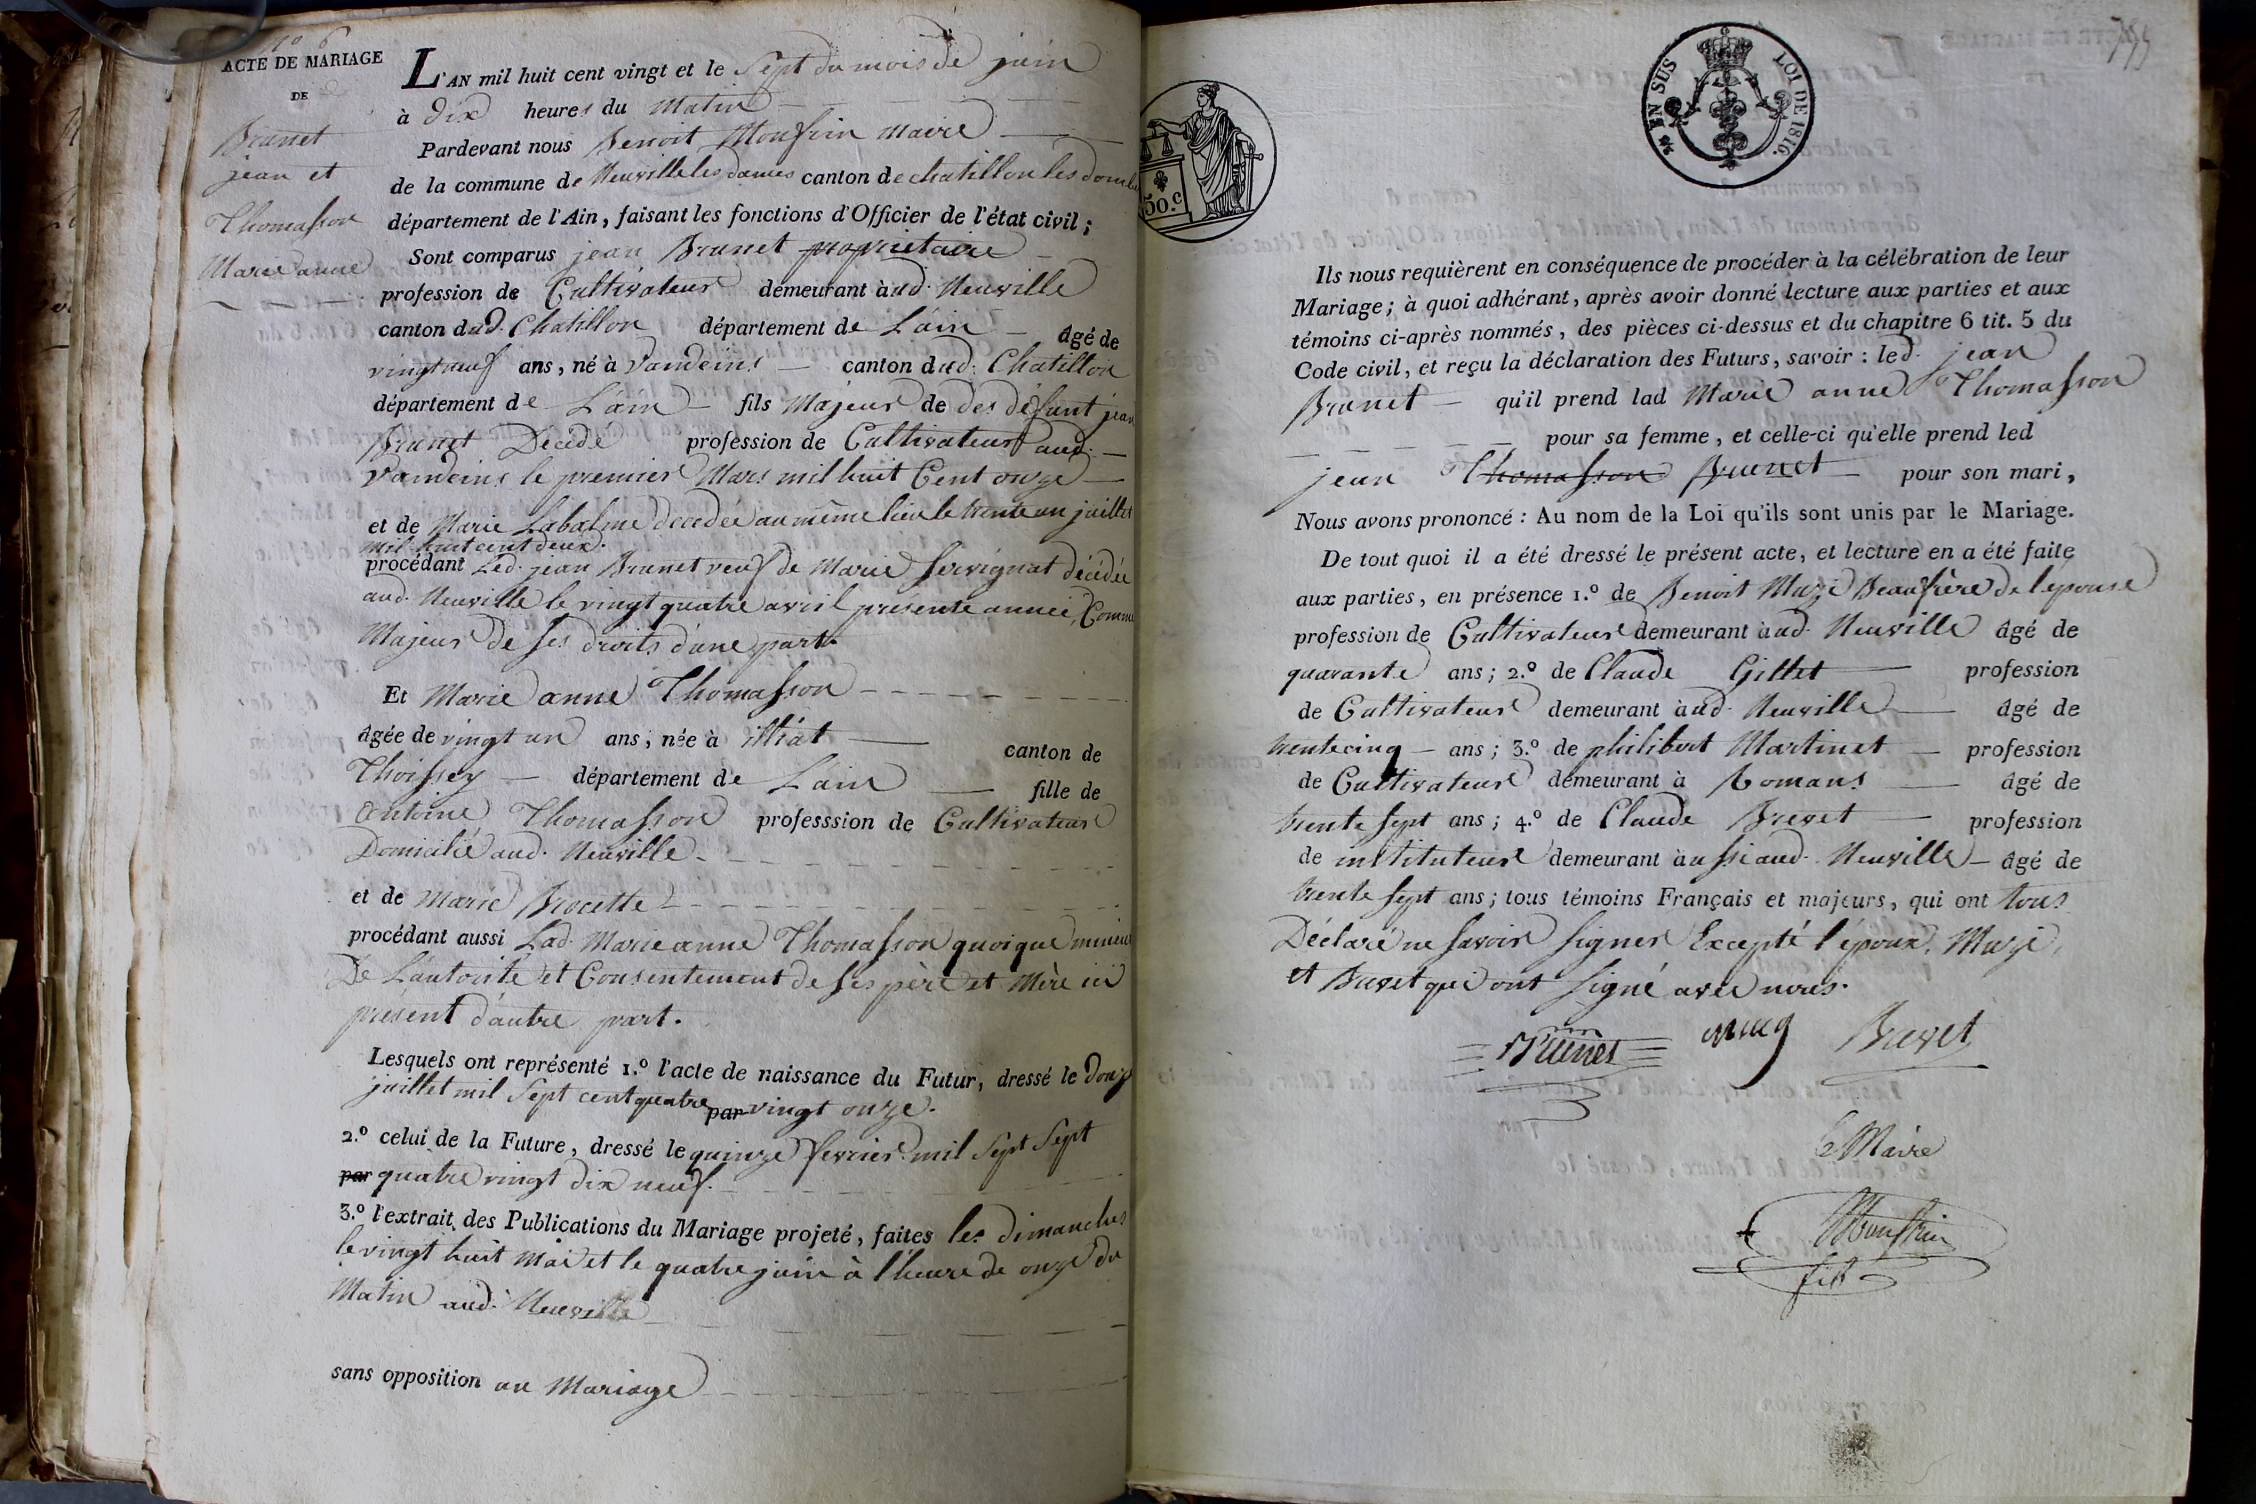 No 6
ACTE DE MARIAGE
DE
Brunet
jean et
Thomasson
Marie anne
L'AN mil huit cent vingt et le Sept du mois de juin
à dix heures du Matin
Pardevant nous Benoit Monfrin maire
de la commune de Neuville les dames canton de chatillon les domb
département de l'Ain, faisant les fonctions d'Officier de l'état civil;
Sont comparus jean Brunet propriétaire
profession de Cultivateur demeurant à aud. Neuville
canton dud. Chatillon département de L'ain âgé de
vingt neuf ans, né à Vandeins canton dud. Chatillon
département de L'ain fils Majeur de des défunt jean
Brunet Décédé profession de Cultivateur aud.
Vandeins le premier Mars mil huit Cent onze
et de Marie Labalme décédée au même lieu le trente un juillet
mil huit cent deux.
procédant Led. jean Brunet veuf de Marie Servignat décédée
aud. Neuville le vingt quatre avril présente année, Comme
Majeur de ses droits d'une part.
Et Marie anne Thomasson
âgée de vingt un ans, née à illiat canton de
Thoissey département de Lain fille de
Antoine Thomasson professsion de Cultivateur
Domicilié aud. Neuville
et de Marie Brocette
procédant aussi Lad. Marie anne Thomasson quoique mineure
De L'autorité et Consentement de ses père et Mère ici
présent d'autre part.
Lesquels ont représenté 1.º l'acte de naissance du Futur, dressé le douze
juillet mil Sept cent quatre par vingt onze.
2.º celui de la Future, dressé le quinze fevrier mil Sept Sept
par quatre vingt dix neuf.
3.º l'extrait des Publications du Mariage projeté, faites les dimanches
le vingt huit Mai et le quatre juin à l'heure de onze du
Matin aud. Neuville
sans opposition au Mariage
50.c
EN SUS LOI DE 1816.
Ils nous requièrent en conséquence de procéder à la célébration de leur
Mariage; à quoi adhérant, après avoir donné lecture aux parties et aux
témoins ci-après nommés, des pièces ci-dessus et du chapitre 6 tit. 5 du
Code civil, et reçu la déclaration des Futurs, savoir: led. jean
Brunet qu'il prend lad Marie anne Thomasson
pour sa femme, et celle-ci qu'elle prend led
jean Thomasson Brunet pour son mari,
Nous avons prononcé: Au nom de la Loi qu'ils sont unis par le Mariage.
De tout quoi il a été dressé le présent acte, et lecture en a été faite
aux parties, en présence 1.º de Benoit Muzi Beaufrère de l'epouse
profession de Cultivateur demeurant à aud. Neuville âgé de
quarante ans; 2.º de Claude Gillet profession
de Cultivateur demeurant à aud. Neuville âgé de
trente cinq ans; 3.º de philibert Martinet profession
de Cultivateur demeurant à Romans âgé de
trente sept ans; 4.º de Claude Brevet profession
de instituteur demeurant à aussi aud. Neuville âgé de
trente sept ans; tous témoins Français et majeurs, qui ont tous
Déclaré ne savoir signer Excepté l'époux, Muzi,
et Brevet qui ont signé avec nous.
Brunet Brevet
le Maire
Monfrin
fils